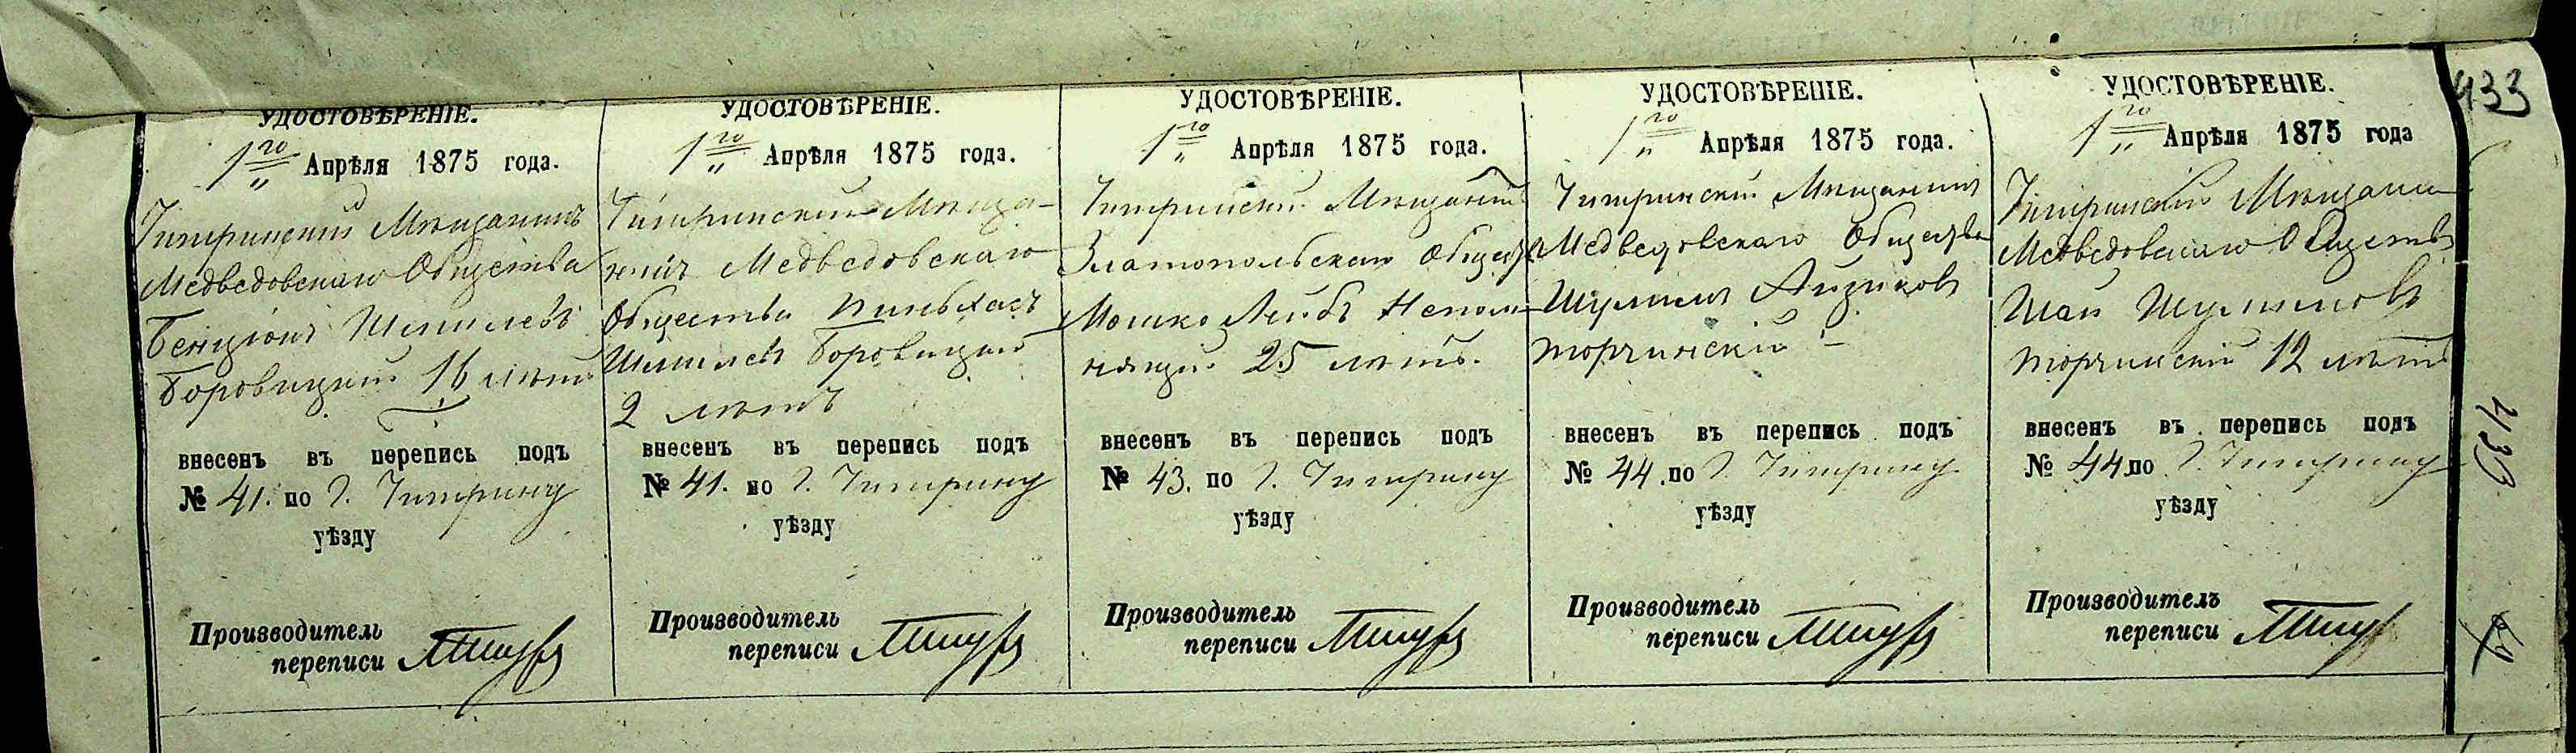 433
УДОСТОВѢРЕНІЕ.
1го Апрѣля 1875 года.
Чигиринскій Мѣщанинъ
Медведовскаго Общества
Бенціонъ Шмилевъ
Боровицкій 16 лѣтъ
внесенъ въ перепись подъ
№ 41. по г. Чигирину
уѣзду
Производитель
переписи
УДОСТОВѢРЕНІЕ.
1го Апрѣля 1875 года.
Чигиринскій Мѣща-
нинъ Медведовскаго
Общества Пинхасъ
Шмилевъ Боровицкій
2 лѣтъ
внесенъ въ перепись подъ
№ 41. по г. Чигирину
уѣзду
Производитель
переписи
УДОСТОВѢРЕНІЕ.
1го Апрѣля 1875 года.
Чигиринскій Мѣщанинъ
Златопольскаго Общества
Мошко Лейбъ Непом-
нящій 25 лѣтъ.
внесенъ въ перепись подъ
№ 43. по г. Чигирину
уѣзду
Производитель
переписи
УДОСТОВѢРЕНІЕ.
1го Апрѣля 1875 года.
Чигиринскій Мѣщанинъ
Медведовскаго Общества
Шулимъ Айзиковъ
Торчинскій
внесенъ въ перепись подъ
№ 44. по г. Чигирину
уѣзду
Производитель
переписи
УДОСТОВѢРЕНІЕ.
1го Апрѣля 1875 года
Чигиринскій Мѣщанинъ
Медведовскаго Общества
Шая Шулимовъ
Торчинскій 12 лѣтъ
внесенъ въ перепись подъ
№ 44 по г. Чигирину
уѣзду
Производитель
переписи
433